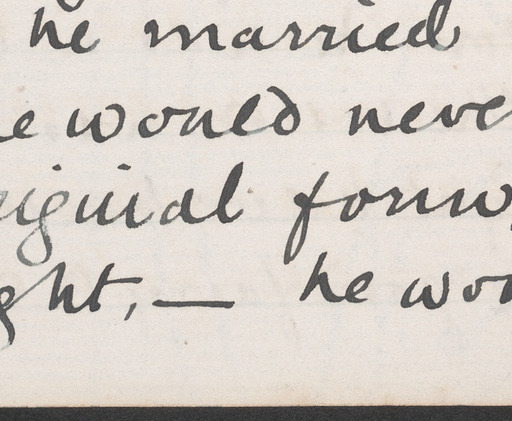 he married
e would neve
riginal form,
ght, — he wou